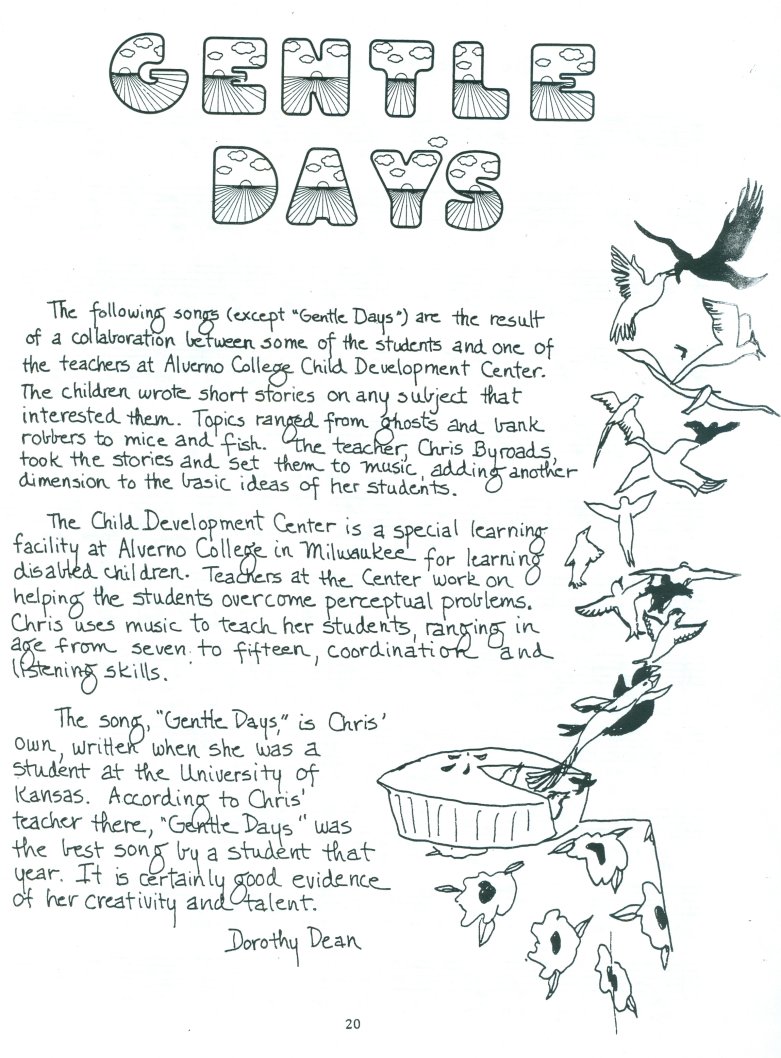 GENTLE
DAYS
The following songs (except "Gentle Days") are the result
of a collaboration between some of the students and one of
the teachers at Alverno College Child Development Center.
The children wrote short stories on any subject that
interested them. Topics ranged from ghosts and bank
robbers to mice and fish. The teacher, Chris Byroads,
took the stories and set them to music, adding another
dimension to the basic ideas of her students.
The Child Development Center is a special learning
facility at Alverno College in Milwaukee for learning
disabled children. Teachers at the Center work on
helping the students overcome perceptual problems.
Chris uses music to teach her students, ranging in
age from seven to fifteen, coordination and
listening skills.
The song, "Gentle Days," is Chris'
own, written when she was a
student at the University of
Kansas. According to Chris'
teacher there, "Gentle Days" was
the best song by a student that
year. It is certainly good evidence
of her creativity and talent.
Dorothy Dean
20